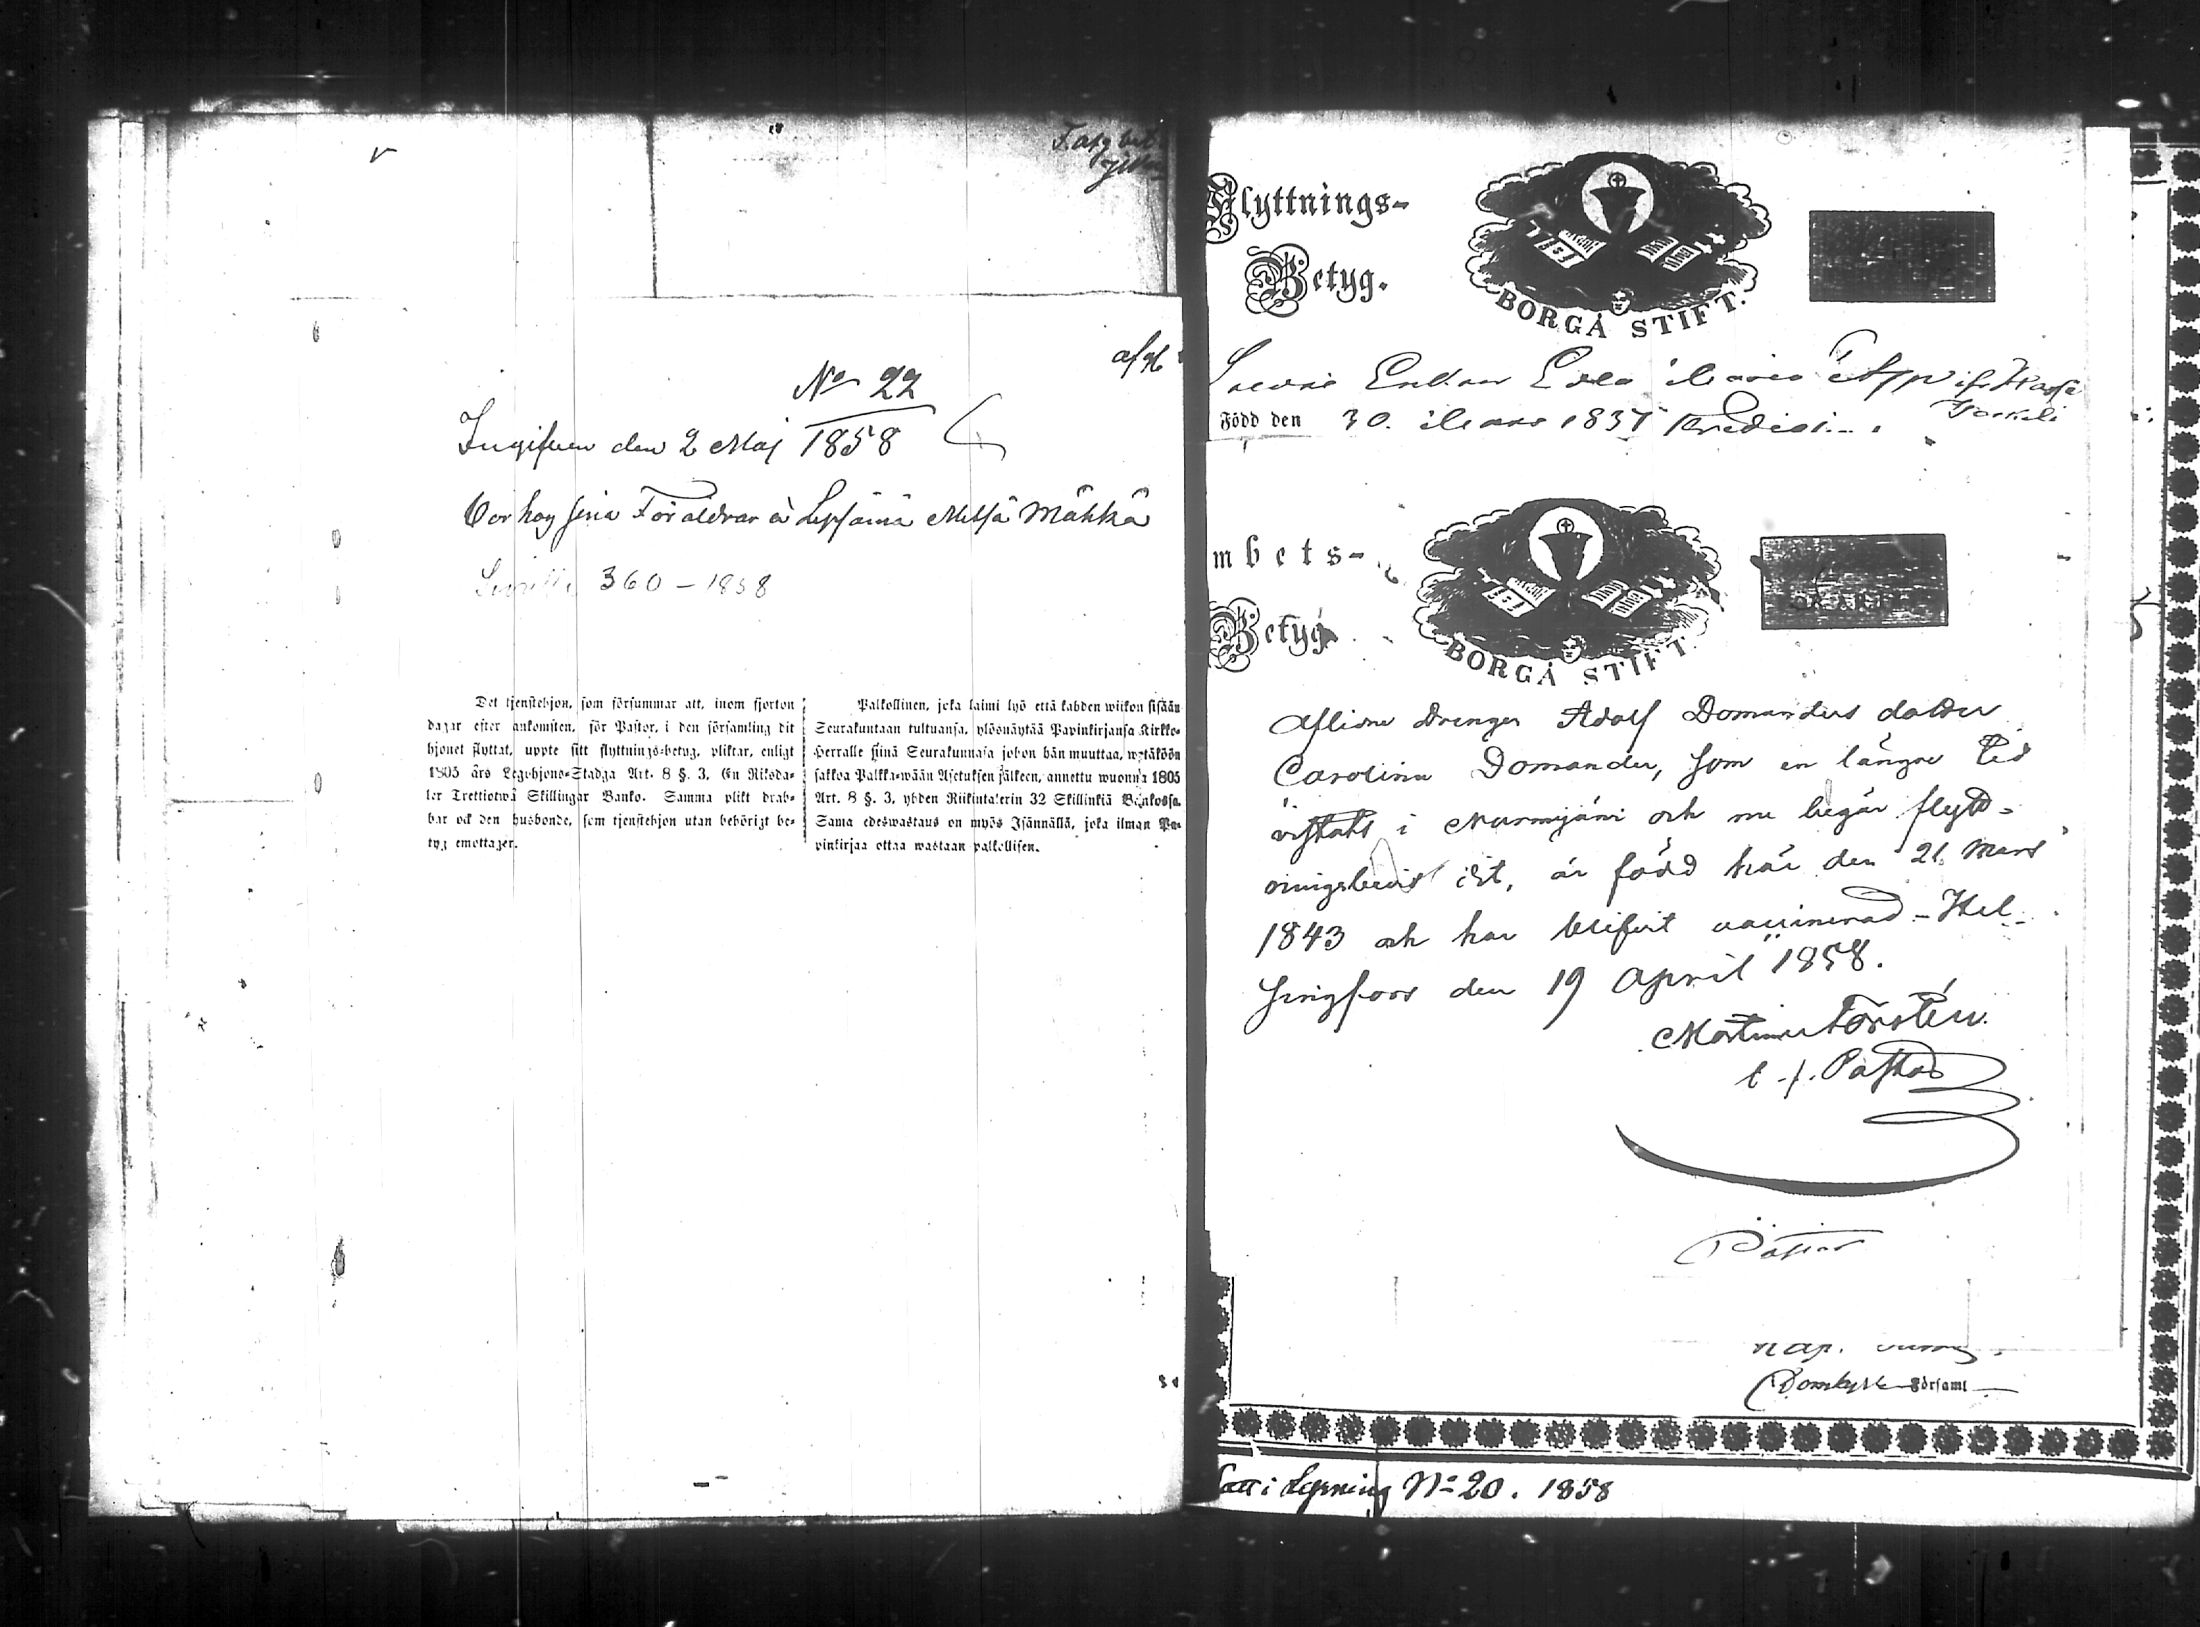 afg
No 22
Ingifven den 2 Maj 1858
Bor hos sina Föräldrar à Lepsämä Metsä Mäkkä
360 - 1858
Det tjenstehjon, som försummar att, inom fjorton
dagar efter ankomsten, för Pastor, i den församling dit
hjonet flyttat, uppte sitt flyttnings-betyg, pliktar, enligt
1805 års Legohjons-Stadga Art. 8 §. 3, En Riksda-
ler Trettiotwå Skillingar Banko. Samma plikt drab-
bar ock den husbonde, som tjenstehjon utan behörigt be-
tyg emottager.
Palkollinen, joka laimi lyö että kahden wiikon sisään
Seurakuntaan tultuansa, ylösnäytää Papinkirjansa Kirkko-
Herralle siinä Seurakunnasa johon hän muuttaa, wetäköön
sakkoa Palkka-wään Asetuksen jälkeen, annettu wuonna 1805
Art. 8 §. 3, yhden Riikintalerin 32 Skillinkiä Bankossa.
Sama edeswastaus on myös Isännällä, joka ilman Pa-
pinkirjaa ottaa wastaan palkollisen.
Flyttnings-
Betyg.
BORGÅ STIFT.
Enkan
Född den 30. Mars 1837
mbets-
Betyg
BORGÅ STIFT.
Aflidne Drengen Adolf Domanders dotter
Carolina Domander, som en längre tid
vistats i Nurmijärvi och nu begär flytt-
ningsbevis dit, är född här den 21 Mars
1843 och har blifvit vaccinerad - Hel-
singfors den 19 April 1858.
Forstén.
Pastor
Pastor
Domkyrko Församl
Satt i Lysning No 20. 1858